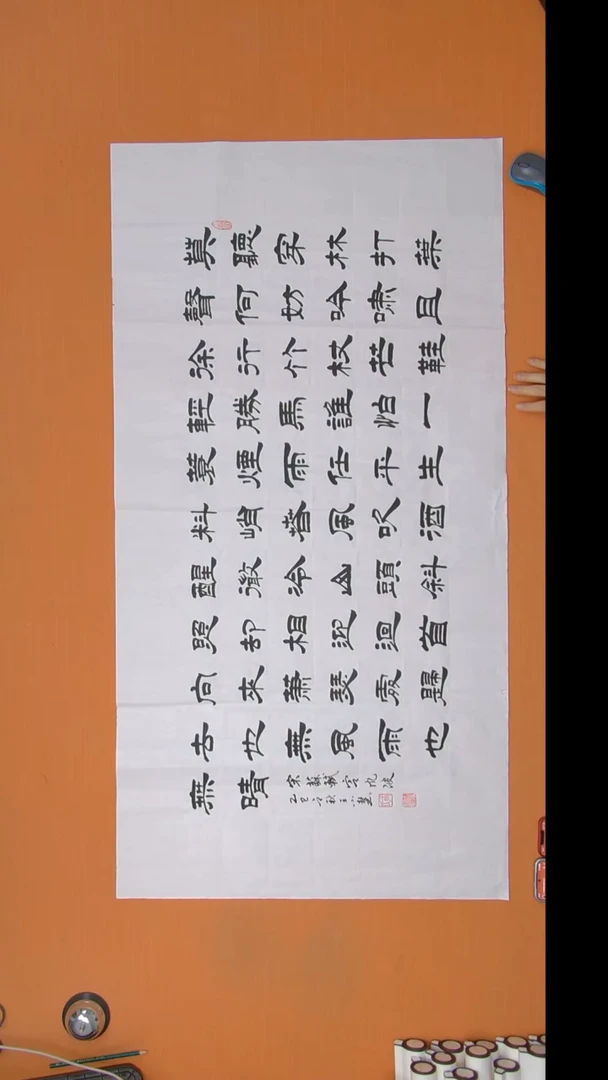 莫聽穿林打葉
聲何妨吟嘯且
徐行竹杖芒鞋
輕勝馬誰怕一
蓑煙雨任平生
料峭春風吹酒
醒微冷山頭斜
照卻相迎迴首
向來蕭瑟處歸
去也無風雨也
無晴
宋蘇軾定風波
乙巳秋王小慧